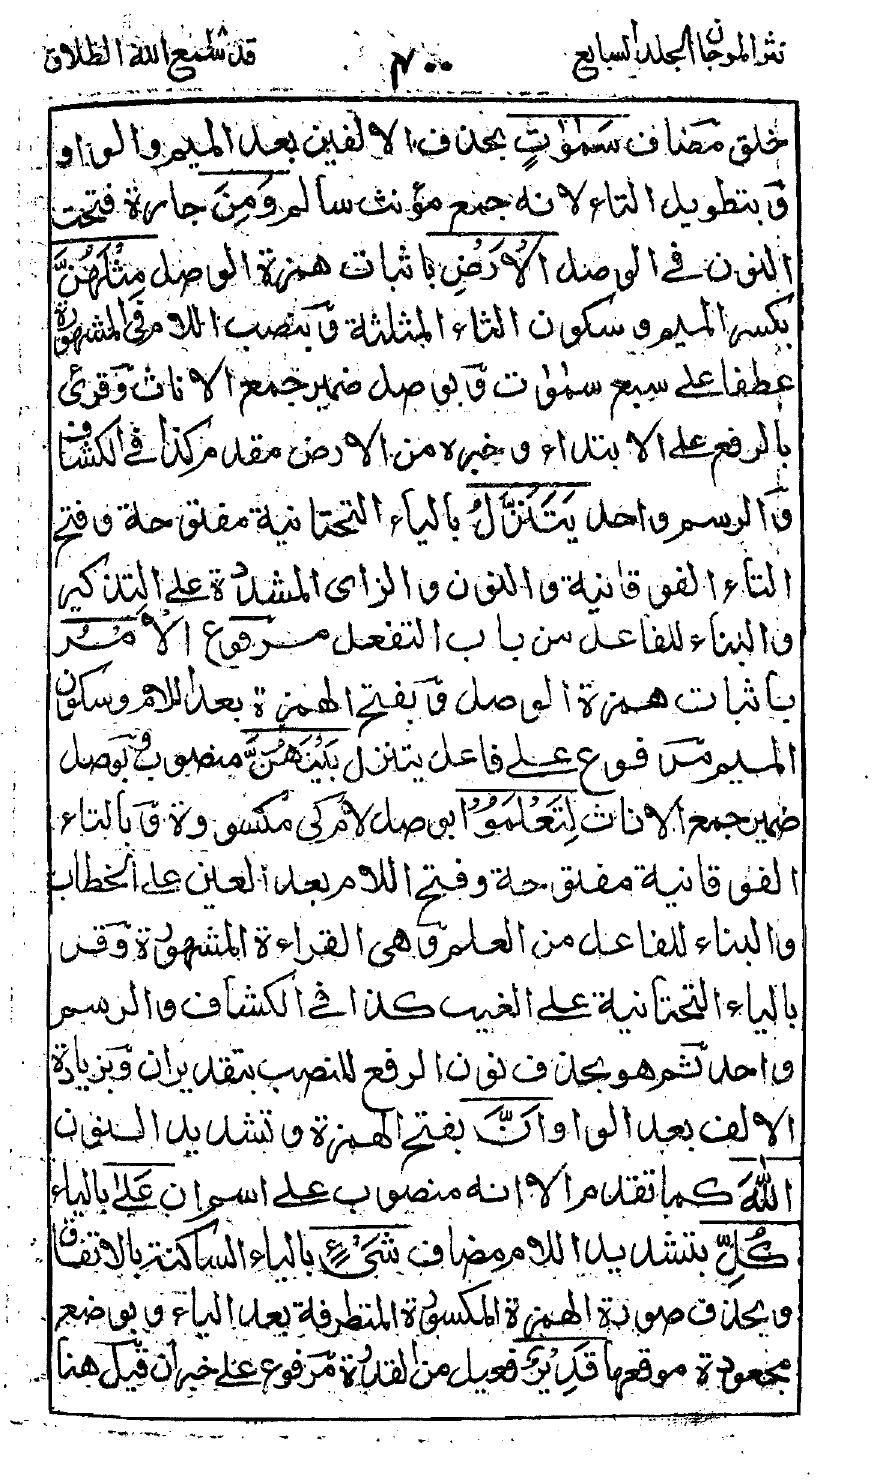 نثر المرجان الجلد السابع
٧٠٠
قد سمع الله الطلاق
خلق مضاف سَمٰوٰتٍ بحذف الالفين بعد الميم والواو
وَبتطويل التاء لانه جمع مؤنث سالم وَمِنَ جارة فتحت
النون فے الوصل الْاَرْضِ باثبات همزة الوصل مِثْلَهُنَّ
بكسر الميم وسكون الثاء المثلثة وَبنصب اللام فى المشهورة
عطفا علے سبع سمٰوٰت وَبوصل ضمير جمع الاناث وَقرئ
بالرفع علے الابتداء وخبره من الارض مقدم كذا فے الكشاف
وَالرسم واحد يَتَنَزَّلُ بالياء التحتانية مفتوحة وفتح
التاء الفوقانية والنون والزاى المشددة علے التذكير
والبناء للفاعل من باب التفعل مرفوع الْاَمْرُ
باثبات همزة الوصل وَبفتح الهمزة بعد اللام وسكون
الميم مرفوع علے فاعل يتنزل بَيْنَهُنَّ منصوب وَبوصل
ضمير جمع الاناث لِتَعْلَمُوْٓا بوصل لام كى مكسورة وَبالتاء
الفوقانية مفتوحة وفتح اللام بعد العين علے الخطاب
والبناء للفاعل من العلم وَهى القراءة المشهورة وَقرئ
بالياء التحتانية علے الغيب كذا فے الكشاف والرسم
واحد ثم هو بحذف نون الرفع للنصب بتقدير ان وَبزيادة
الالف بعد الواو اَنَّ بفتح الهمزة وتشديد النون
اللّٰهَ كما تقدم الا انه منصوب علے اسم ان عَلٰے بالياء
كُلِّ بتشديد اللام مضاف شَىْءٍ بالياء الساكنة بالاتفاق
وبحذف صورة الهمزة المكسورة المتطرفة بعد الياء وبوضع
مجعودة موقعها قَدِيْرٌ فعيل من القدرة مرفوع علے خبر ان قيل هنا